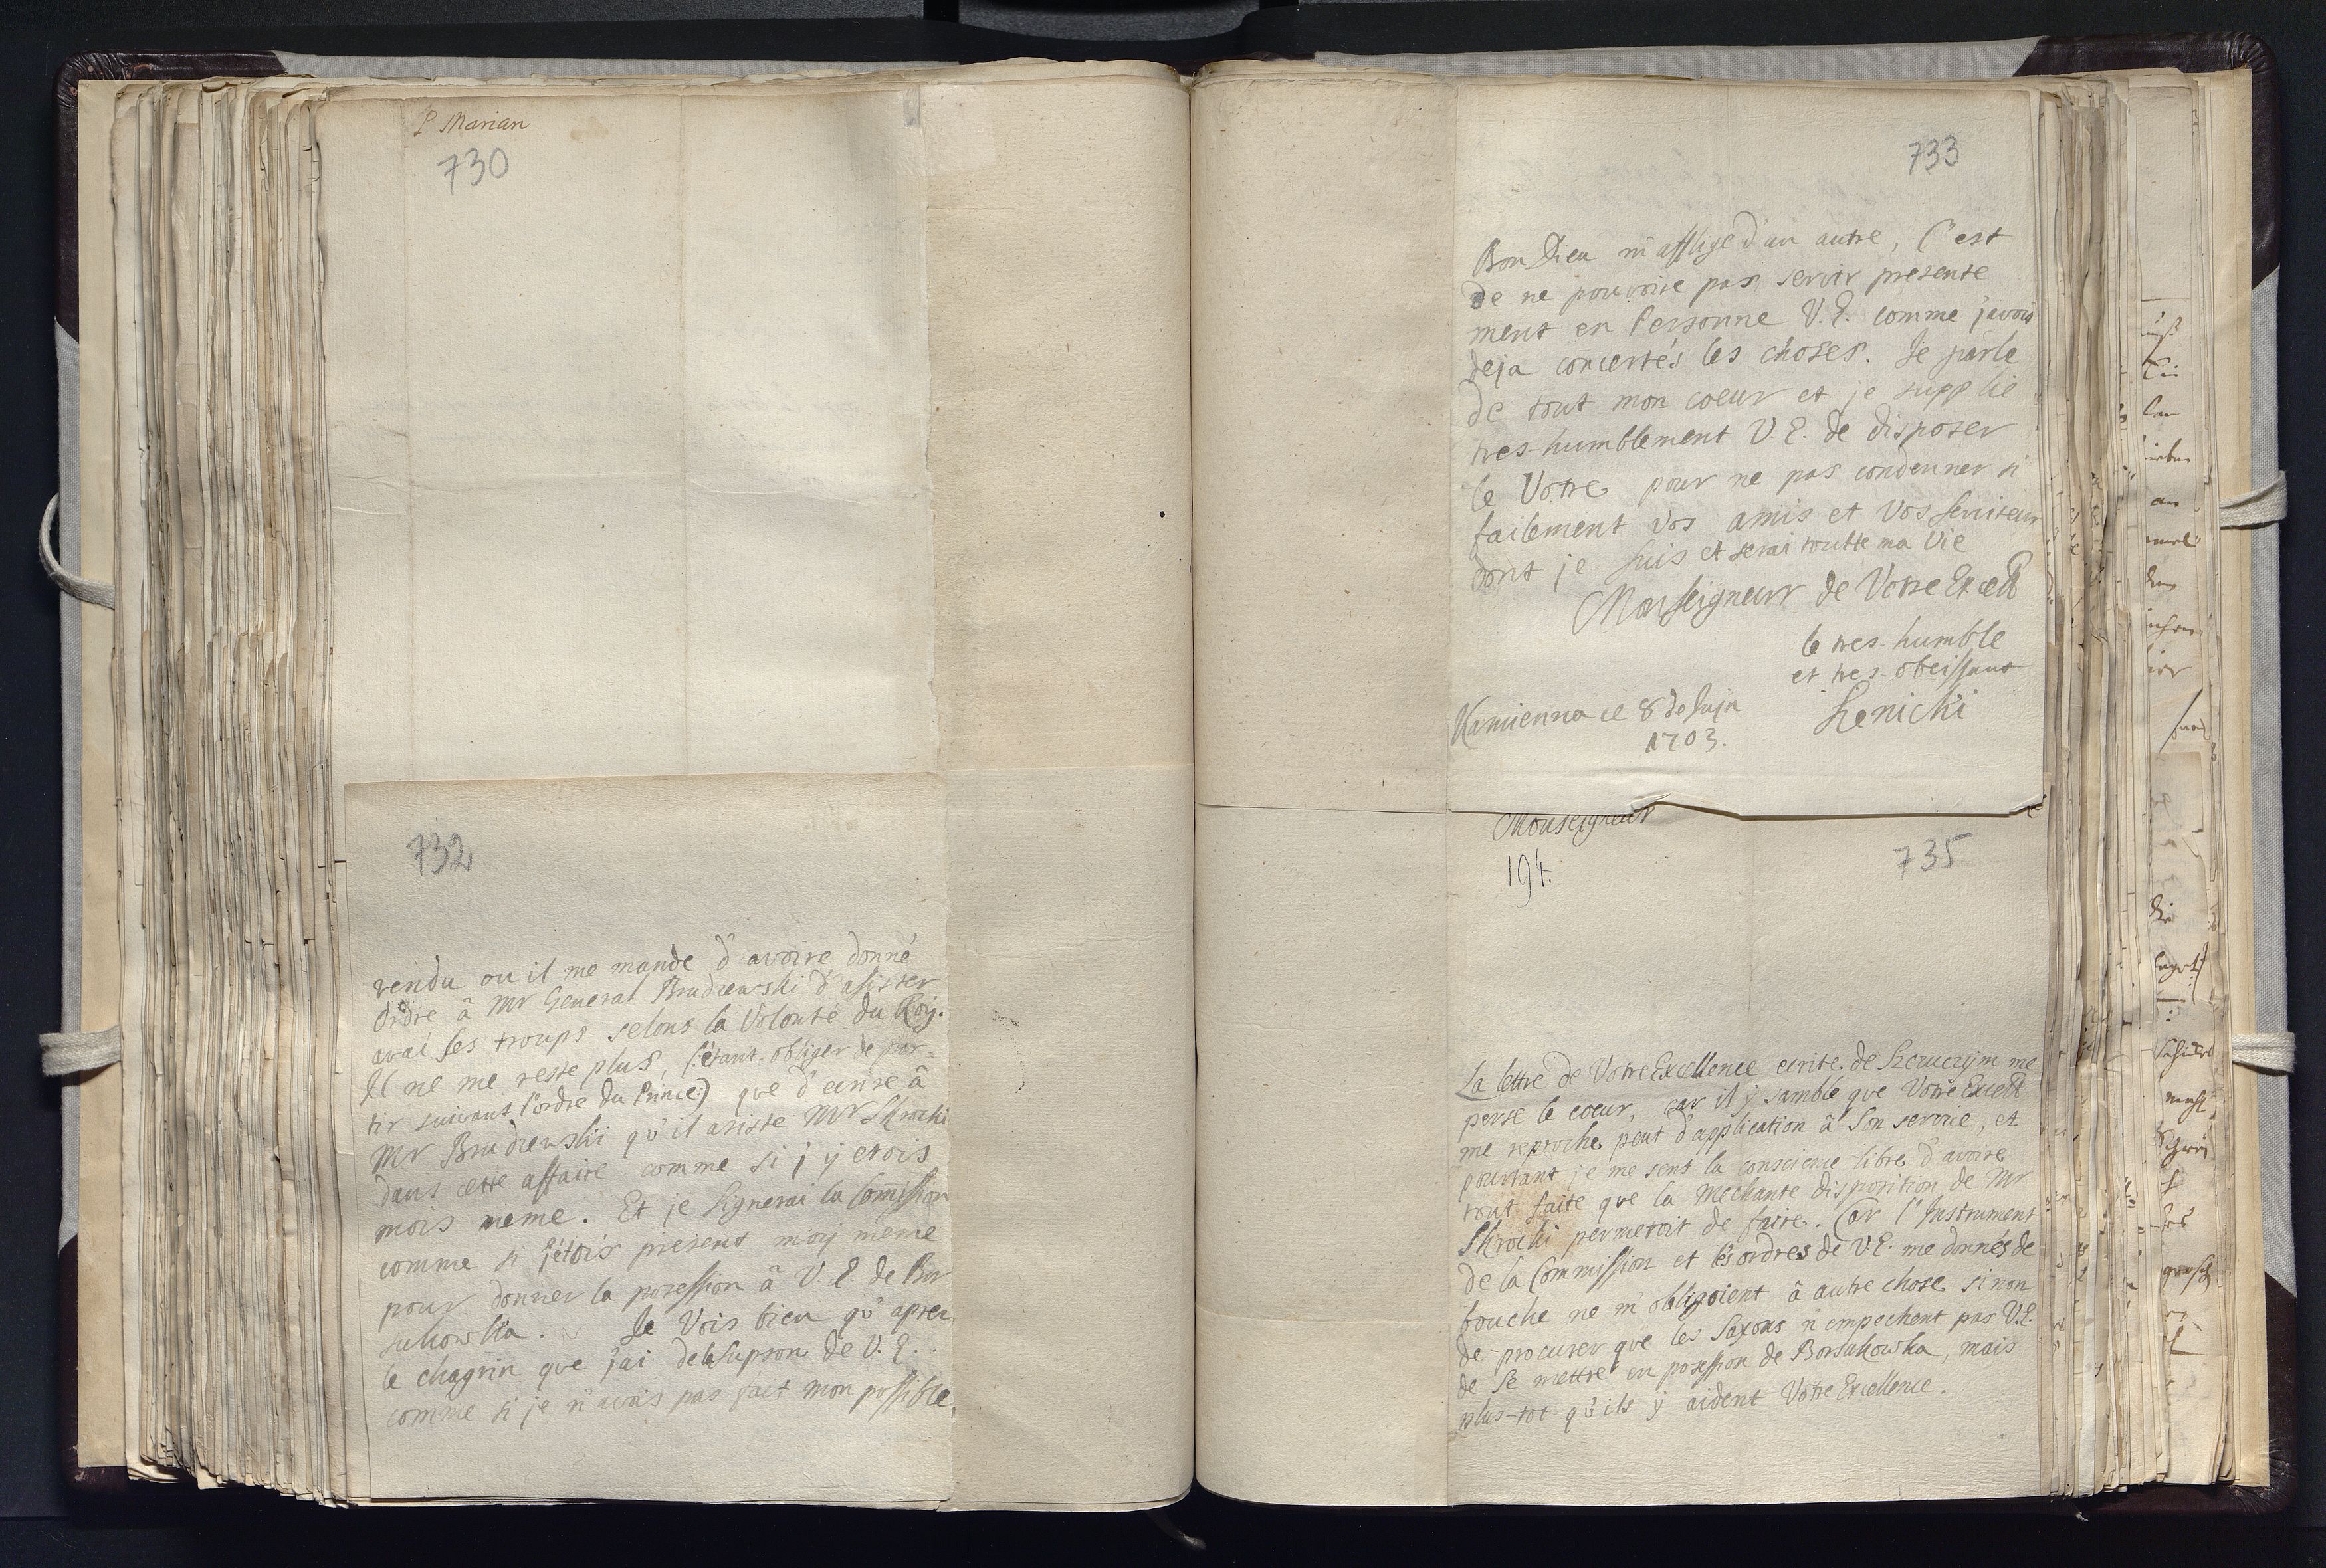 P Marian
730
732
rendu ou il me mande d'avoire donné
ordre â Mr General Brudzewski d'asister
avai ses troups selons la Volonté du Roÿ.
Il ne me reste plus, (: étant obliger de par-
tir suivant l'ordre du Prince:) que d'ecrire â
Mr Brudzewski qu'il asiste Mr Skrocki
dans cette affaire comme si j'ÿ etois
mois meme. Et je Signerai la Com̄ission
comme si j'étois présent moÿ meme
pour donner la posession â V. E. de Bor
sukowka. Je Vois bien qu'aprez
le chagrin que j'ai de la supson de V. E.
comme si je n'avois pas fait mon possible,
733
Bon Dieu m'afflige d'un autre, C'est
de ne pouvoire pas servir presente
ment en Personne V. E. comme j'avois
deja concertés les choses. Je parle
de tout mon coeur et je supplie
tres-humblement V. E. de disposer
le Votre pour ne pas condenner si
failement vos amis et Vos Serviteur
dont je suis et serai toutte ma Vie
Monseigneur de Votre Excell
le tres-humble
et tres-obeissant
Szenicki
Kamienna ce 8 de Juin
1703.
Monseigneur
194.
735
La lettre de Votre Excellence ecrite de Szczuczÿm me
perse le coeur, car il ÿ samble que Votre Excell
me reproche peut d'application â Son service, et
pourtant je me sent la conscience libre d'avoire
tout faite que la mechante disposition de Mr
Skrocki permetoit de faire. Car l'Instrument
de la Commission et lés ordres de V. E. me donnés de
bouche ne m'obligoient â autre chose sinon
de procurer que les Saxons n'empechent pas V. E.
de Se mettre en posession de Borsukowka, mais
plus-tot qu'ils ÿ aident Votre Excellence.